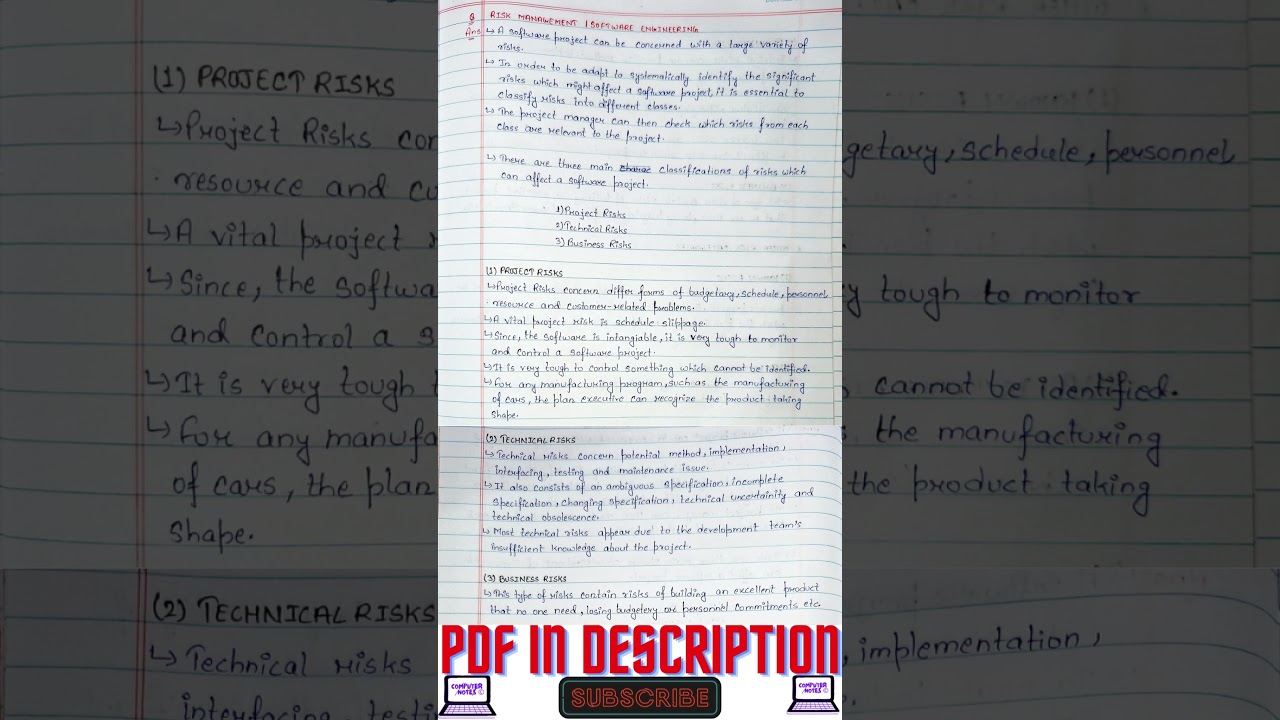 Q RISK MANAWEMENT | SOFTWARE ENGINEERING
Ans ↳ A software project can be concerned with a large variety of
risks.
↳ In order to be adapt to systematically identify the significant
risks which might affect a software project, it is essential to
classify risks into different classes.
↳ The project manager can then check which risks from each
class are relevant to the project.
↳ There are three main classifications of risks which
can affect a software project.
1) Project Risks
2) Technical Risks
3) Business Risks
(1) PROJECT RISKS
↳ Project Risks concern differ forms of budgetary, schedule, personnel,
resource and customer-related problems.
↳ A vital project risk is schedule slippage.
↳ Since, the software is intangiable, it is very tough to monitor
and control a software project.
↳ It is very tough to control something which cannot be identified.
↳ For any manufacturing program, such as the manufacturing
of cars, the plan executive can recognize the product taking
shape.
(2) TECHNICAL RISKS
↳ Technical risks concern potential method, implementation,
interfacing, testing and maintenance issue.
↳ It also consists of an ambiguous specification, incomplete
specification, changing specification, technical uncertainity and
technical obsolescence.
↳ Most technical risks appear due to the development team's
insufficient knowledge about the project.
(3) BUSINESS RISKS
↳ This type of risks contain risks of building an excellent product
that no one need, losing budgetery or personnel commitments etc.
PDF IN DESCRIPTION
COMPUTER NOTES ©
SUBSCRIBE
COMPUTER NOTES ©
(1) PROJECT RISKS
↳ Project Risks con
resource and cu
↳ A vital project
↳ Since, the softwa
and control a s
↳ It is very tough
↳ For any manufa
of cars, the plan
shape.
(2) TECHNICAL RISKS
↳ Technical risks
getary, schedule, personnel,
y tough to monitor
cannot be identified.
the manufacturing
the product taking
, implementation,